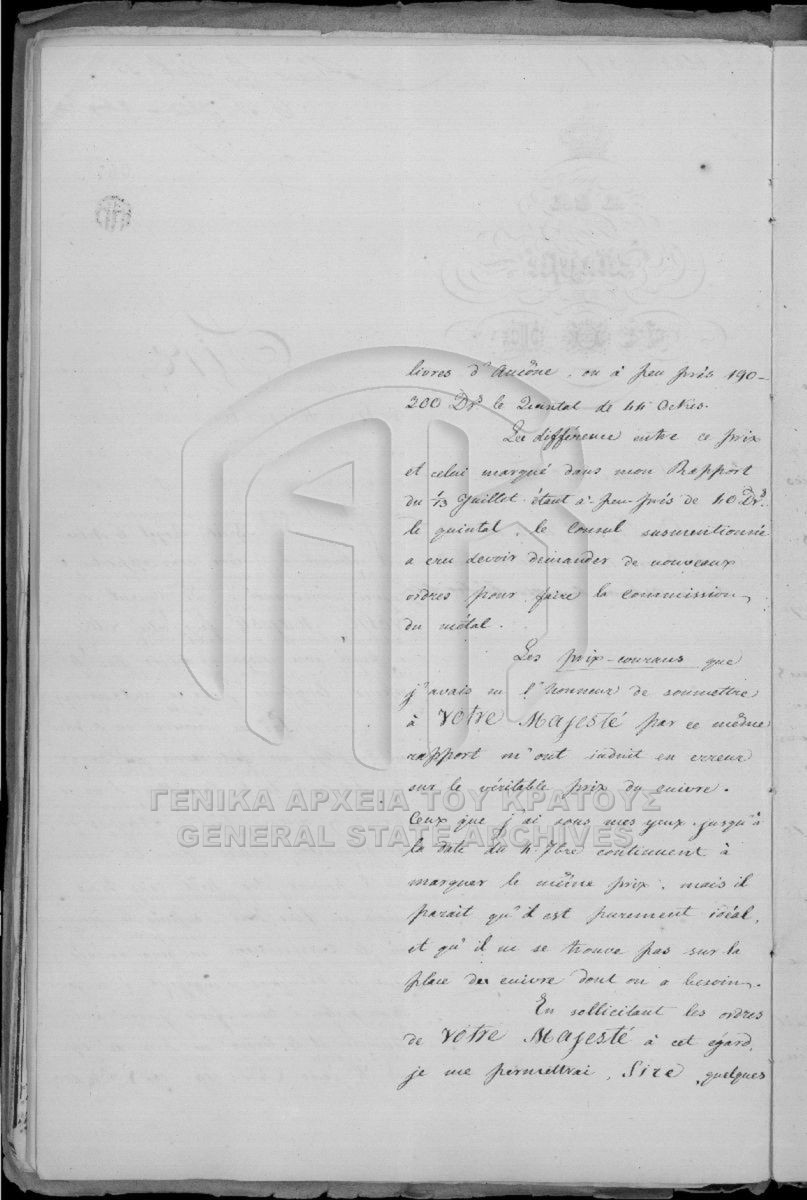 livres d'Ancône, ou à peu près 190-
200 Drs le Quintal de 44 Ockes.
La différence entre ce prix
et celui marqué dans mon Rapport
du 1/13 Juillet étant à-peu-près de 40 Drs
le quintal, le Consul susmentionné
a cru devoir demander de nouveaux
ordres pour faire la commission
du métal.
Les prix-courans que
j'avais eu l'honneur de soumettre
à Votre Majesté par ce même
rapport m'ont induit en erreur
sur le véritable prix du cuivre.
Ceux que j'ai sous mes yeux jusqu'à
la date du 4 7bre continuent à
marquer le même prix, mais il
parait qu'il est purement idéal,
et qu'il ne se trouve pas sur la
place du cuivre dont on a besoin.
En sollicitant les ordres
de Votre Majesté à cet égard,
je me permettrai, Sire, quelques
ΓΕΝΙΚΑ ΑΡΧΕΙΑ ΤΟΥ ΚΡΑΤΟΥΣ
GENERAL STATE ARCHIVES